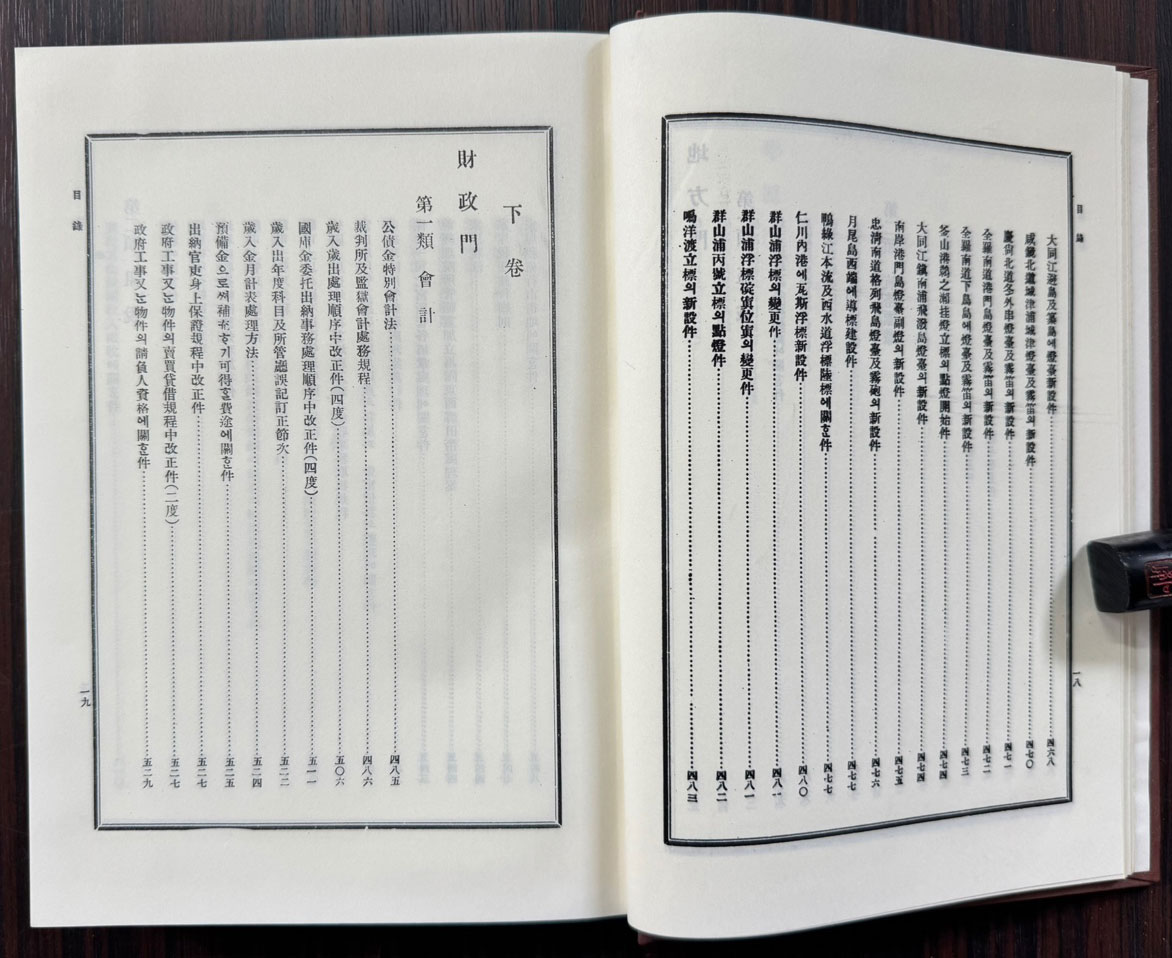 目錄
大同江避島及窩島에燈臺新設件 四六八
咸鏡北道城津浦城津燈臺及霧笛의新設件 四七〇
慶尙北道冬外串燈臺及霧笛의新設件 四七一
全羅南道港門島燈臺及霧笛의新設件 四七二
全羅南道下島에燈臺及霧笛의新設件 四七三
釜山港鵝之湘挂燈立標의點燈開始件 四七四
大同江鎭南浦飛潑島燈臺의新設件 四七四
南岸港門島燈臺副燈의新設件 四七五
忠淸南道格列飛島燈臺及霧砲의新設件 四七六
月尾島西端에導標建設件 四七七
鴨綠江本流及西水道浮標陸標에關한件 四七七
仁川內港에瓦斯浮標新設件 四八〇
群山浦浮標의變更件 四八一
群山浦浮標碇寘位寘의變更件 四八一
群山浦丙號立標의點燈件 四八二
鳴洋渡立標의新設件 四八三
一八
下卷
財政門
第一類 會計
公債金特別會計法 四八五
裁判所及監獄會計處務規程 四八六
歲入歲出處理順序中改正件(四度) 五〇六
國庫金委托出納事務處理順序中改正件(四度) 五一一
歲入出年度科目及所管廳誤記訂正節次 五二二
歲入金月計表處理方法 五二四
預備金으로써補充하기可得한費途에關한件 五二五
出納官吏身上保證規程中改正件 五二七
政府工事又는物件의賣買貸借規程中改正件(二度) 五二七
政府工事又는物件의請負人資格에關한件 五二九
目錄
一九